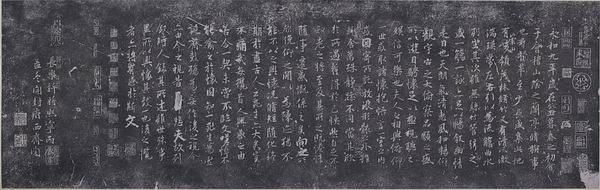 永和九年歲在癸丑暮春之初會
于會稽山陰之蘭亭脩禊事
也群賢畢至少長咸集此地
有崇山峻領茂林脩竹又有清流激
湍暎帶左右引以為流觴曲水
列坐其次雖無絲竹管弦之
盛一觴一詠亦足以暢敘幽情
是日也天朗氣清惠風和暢仰
觀宇宙之大俯察品類之盛
所以遊目騁懷足以極視聽之
娛信可樂也夫人之相與俯仰
一世或取諸懷抱悟言一室之內
或因寄所託放浪形骸之外雖
趣舍萬殊靜躁不同當其欣
於所遇暫得於己怏然自足不
知老之將至及其所之既惓情
隨事遷感慨係之矣向之所
欣俛仰之間以為陳迹猶不
能不以之興懷況脩短隨化終
期於盡古人云死生亦大矣豈
不痛哉每攬昔人興感之由
若合一契未嘗不臨文嗟悼不
能喻之於懷固知一死生為虛
誕齊彭殤為妄作後之視今
亦由今之視昔悲夫故列
敘時人錄其所述雖世殊事
異所以興懷其致一也後之攬
者亦將有感於斯文
長樂許將熙寧丙辰
孟冬開封府西齋閱